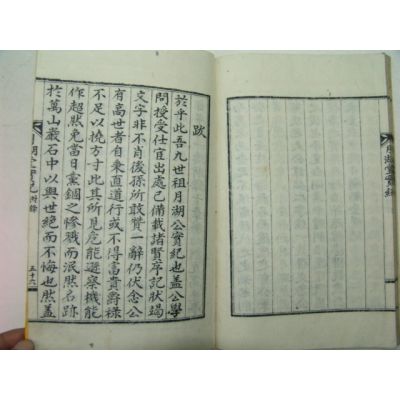 跋
於乎此吾九世祖月湖公實紀也盖公學
問授受仕宜出處已備載諸賢序記狀碣
文字非不肖後孫所敢贊一辭仍伏念公
有高世者自乘直道行或不得富貴爵祿
不足以撓方寸此其所見危能避察機能
作超然免當日黨錮之慘戮而泯然名跡
於萬山巖石中以與世絶而不悔也然盖
附錄
五十六